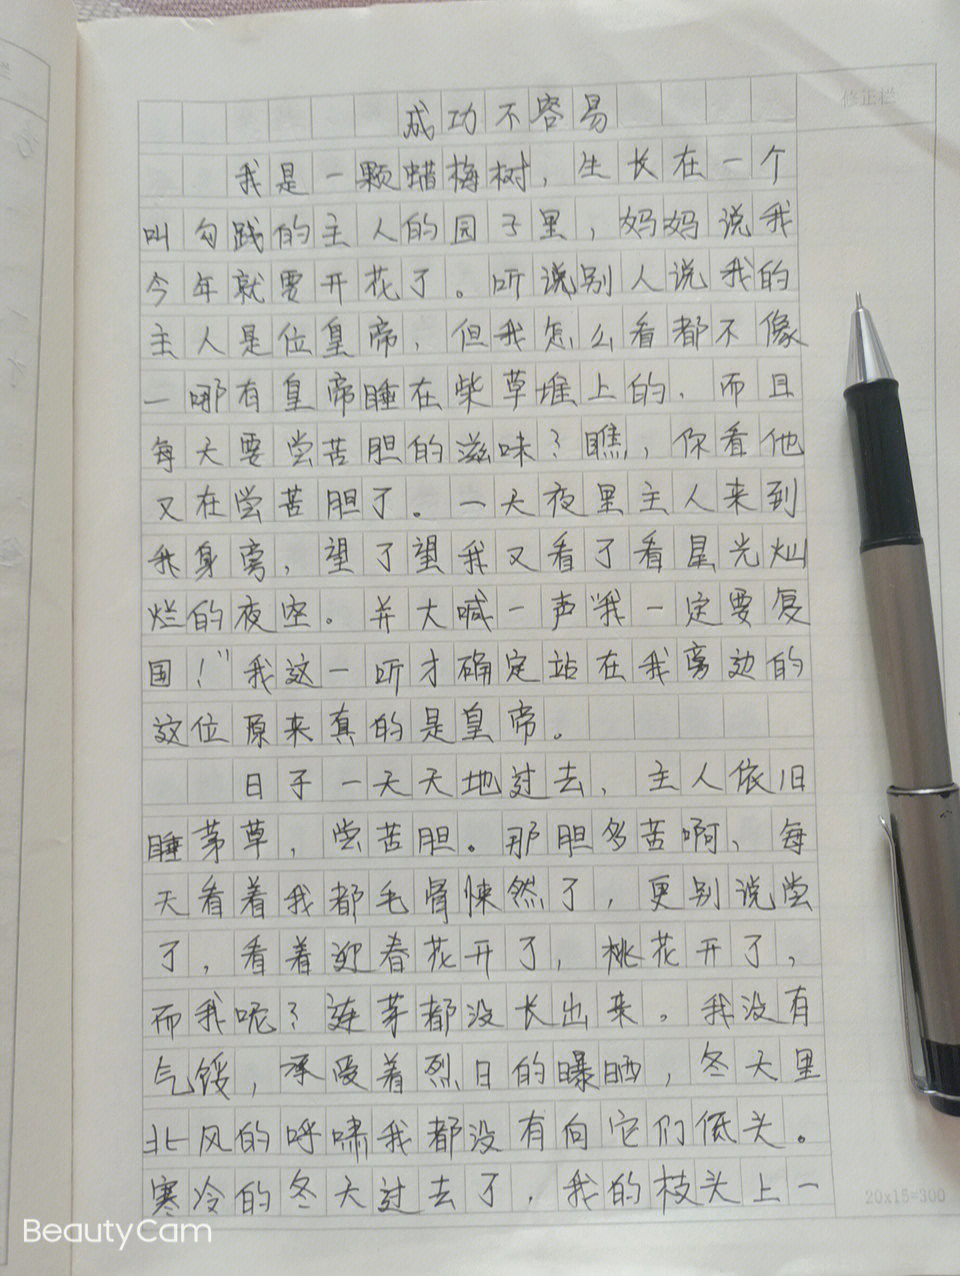 成功不容易
修正栏
我是一颗蜡梅树，生长在一个
叫勾践的主人的园子里，妈妈说我
今年就要开花了。听说别人说我的
主人是位皇帝，但我怎么看都不像
一哪有皇帝睡在柴草堆上的，而且
每天要尝苦胆的滋味？瞧，你看他
又在尝苦胆了。一天夜里主人来到
我身旁，望了望我又看了看星光灿
烂的夜空。并大喊一声“我一定要复
国！”我这一听才确定站在我旁边的
这位原来真的是皇帝。
日子一天天地过去，主人依旧
睡茅草，尝苦胆。那胆多苦啊、每
天看着我都毛骨悚然了，更别说尝
了，看着迎春花开了，桃花开了，
而我呢？连芽都没长出来。我没有
气馁，承受着烈日的曝晒，冬天里
北风的呼啸我都没有向它们低头。
寒冷的冬天过去了，我的枝头上一
20x15=300
BeautyCam